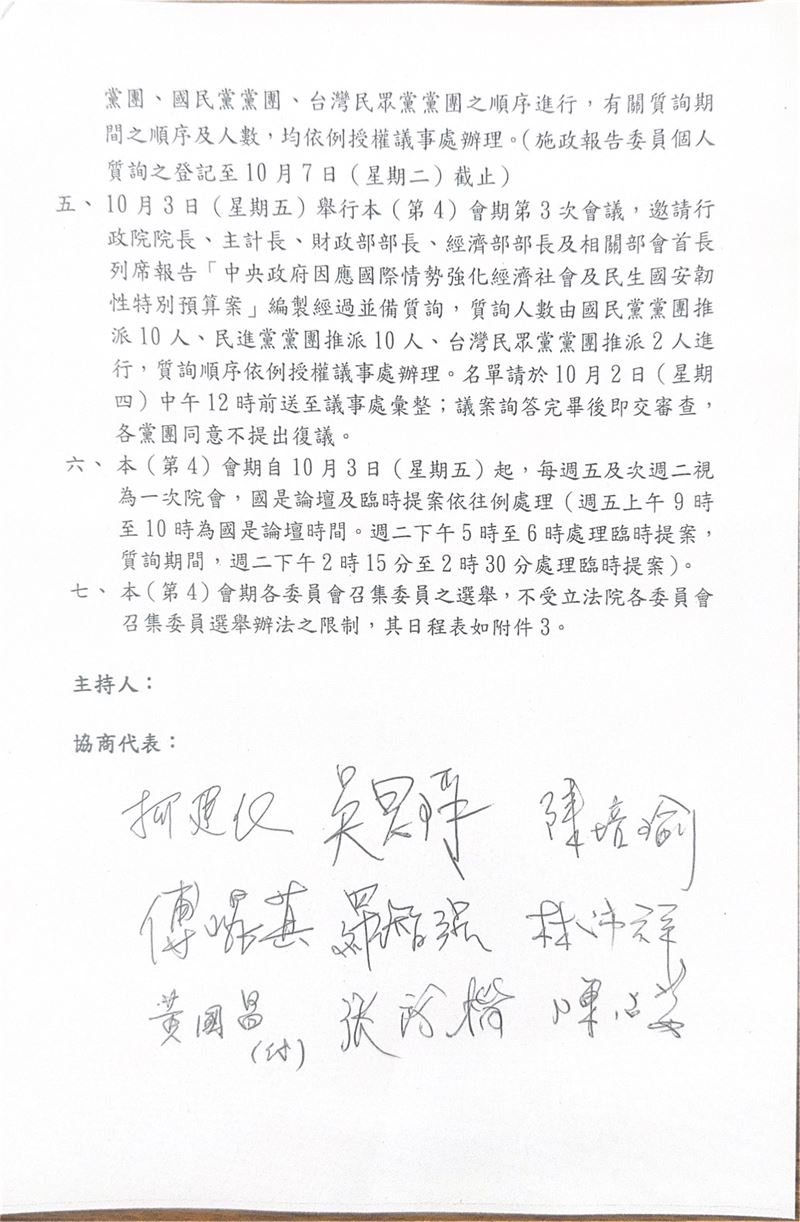 黨團、國民黨黨團、台灣民眾黨黨團之順序進行，有關質詢期
間之順序及人數，均依例授權議事處辦理。（施政報告委員個人
質詢之登記至10月7日（星期二）截止）
五、10月3日（星期五）舉行本（第4）會期第3次會議，邀請行
政院院長、主計長、財政部部長、經濟部部長及相關部會首長
列席報告「中央政府因應國際情勢強化經濟社會及民生國安韌
性特別預算案」編製經過並備質詢，質詢人數由國民黨黨團推
派10人、民進黨黨團推派10人、台灣民眾黨黨團推派2人進
行，質詢順序依例授權議事處辦理。名單請於10月2日（星期
四）中午12時前送至議事處彙整；議案詢答完畢後即交審查，
各黨團同意不提出復議。
六、本（第4）會期自10月3日（星期五）起，每週五及次週二視
為一次院會，國是論壇及臨時提案依往例處理（週五上午9時
至10時為國是論壇時間。週二下午5時至6時處理臨時提案，
質詢期間，週二下午2時15分至2時30分處理臨時提案）。
七、本（第4）會期各委員會召集委員之選舉，不受立法院各委員會
召集委員選舉辦法之限制，其日程表如附件3。
主持人：
協商代表：
陳培瑜
傅 萁 羅智強 林沛祥
黃國昌 張啓楷 陳